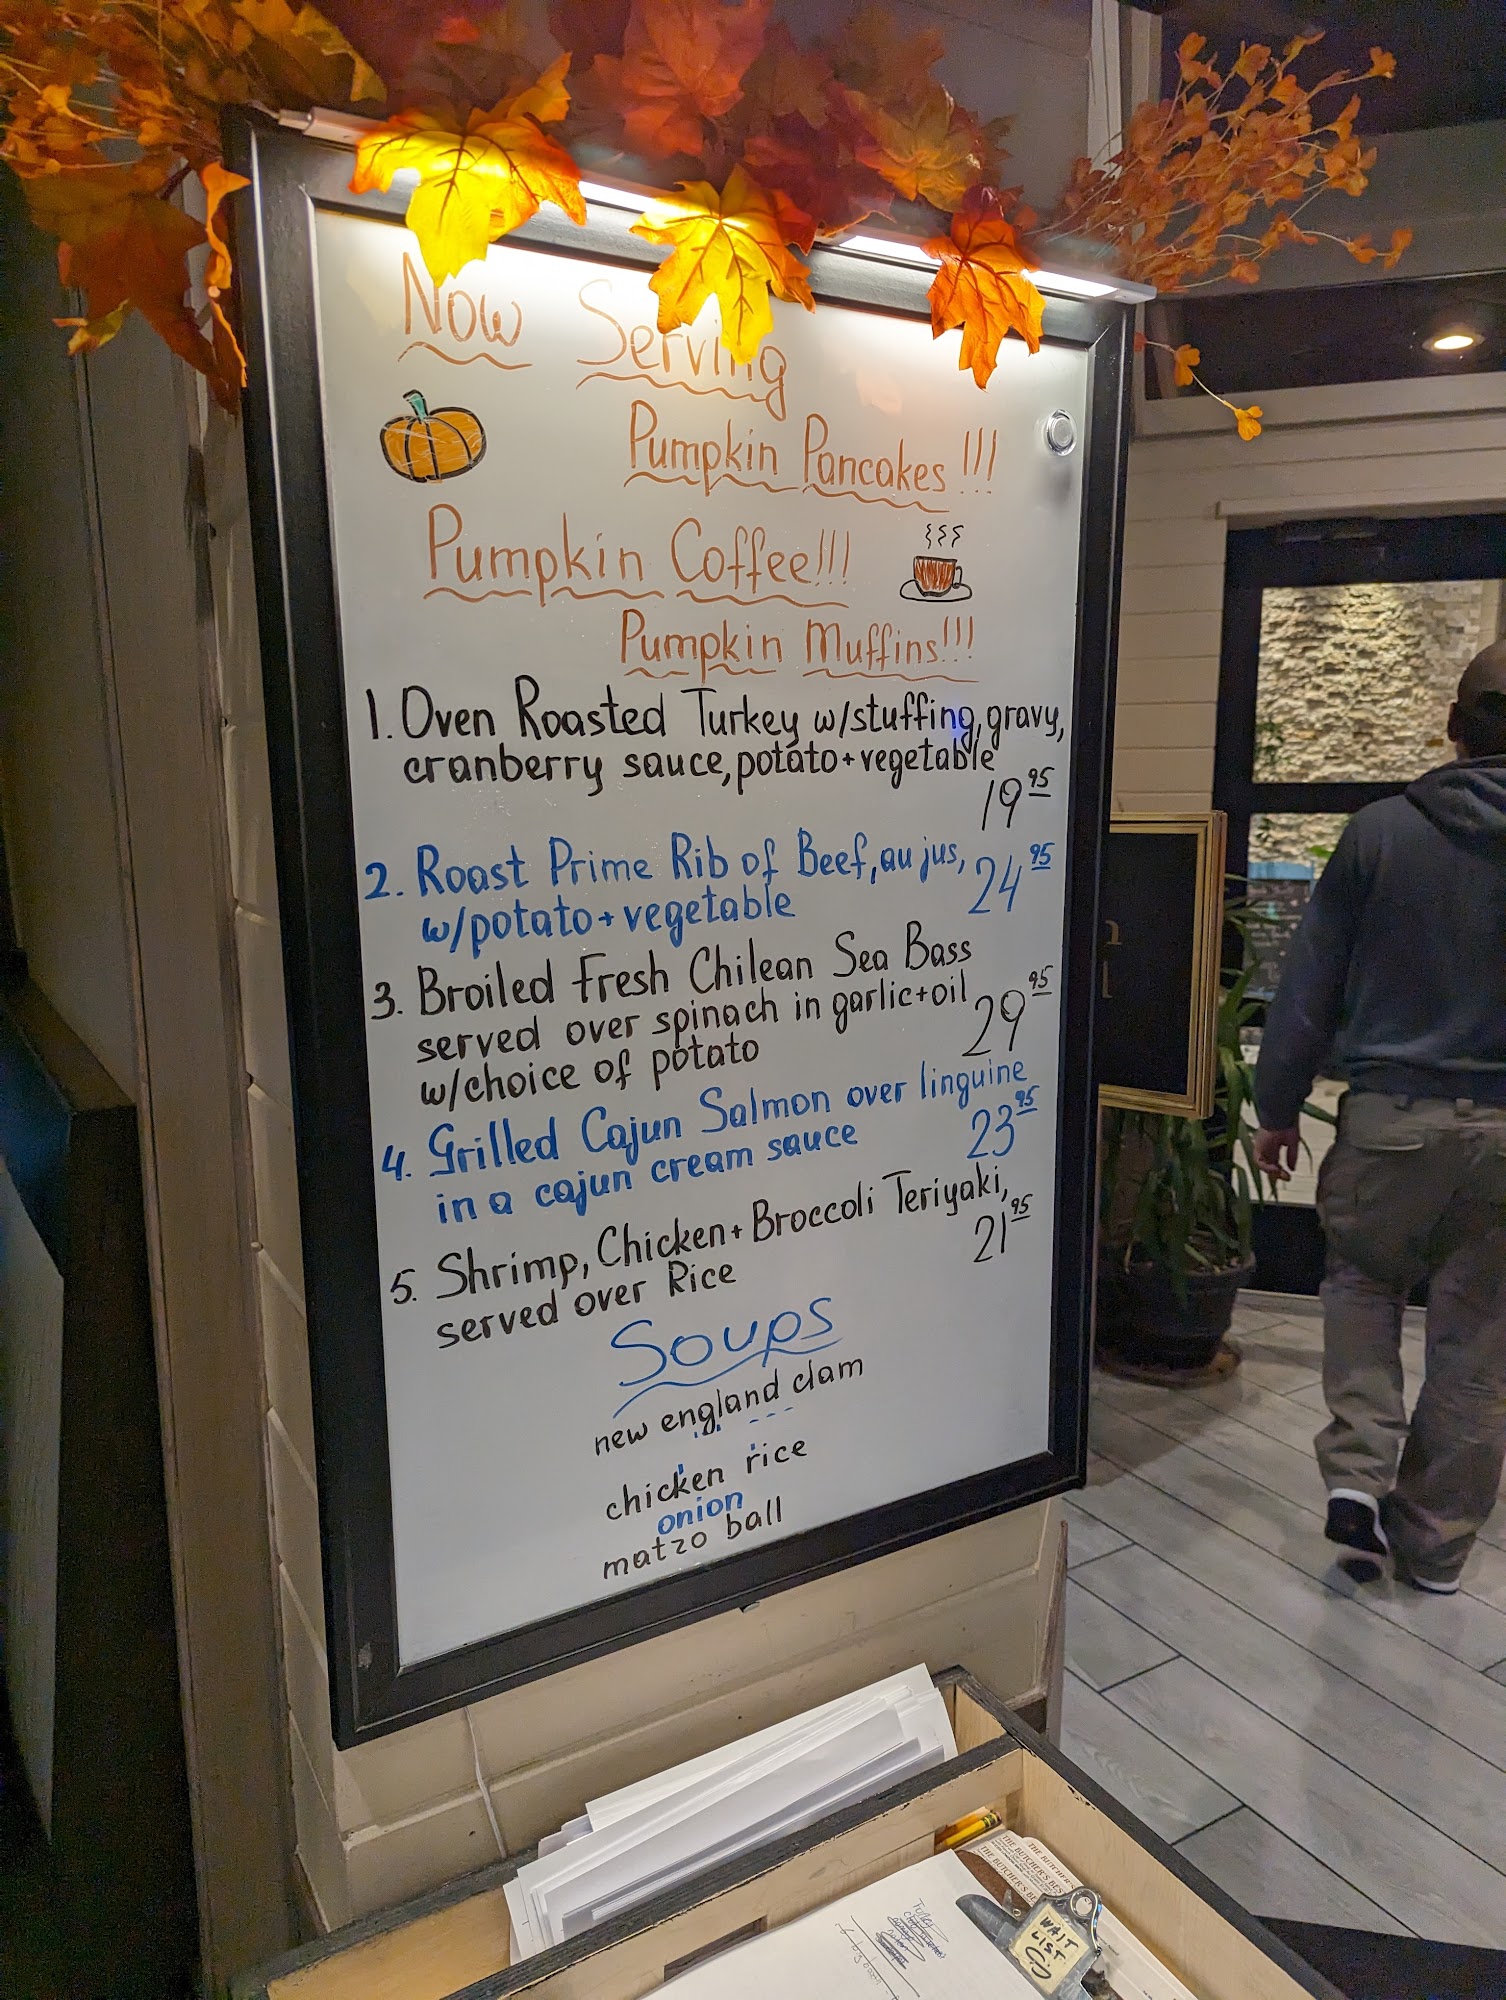 Now Serving
Pumpkin Pancakes!!!
Pumpkin Coffee!!!
Pumpkin Muffins!!!
1. Oven Roasted Turkey w/stuffing, gravy,
cranberry sauce, potato + vegetable
19 95
2. Roast Prime Rib of Beef, au jus,
w/potato + vegetable
24 95
3. Broiled Fresh Chilean Sea Bass
served over spinach in garlic + oil
w/choice of potato
29 95
4. Grilled Cajun Salmon over linguine
in a cajun cream sauce
23 95
5. Shrimp, Chicken + Broccoli Teriyaki,
served over Rice
21 95
Soups
new england clam
chicken rice
onion
matzo ball
THE BUTCHER'S
THE BUTCHER'S BES
WAIT
LIST